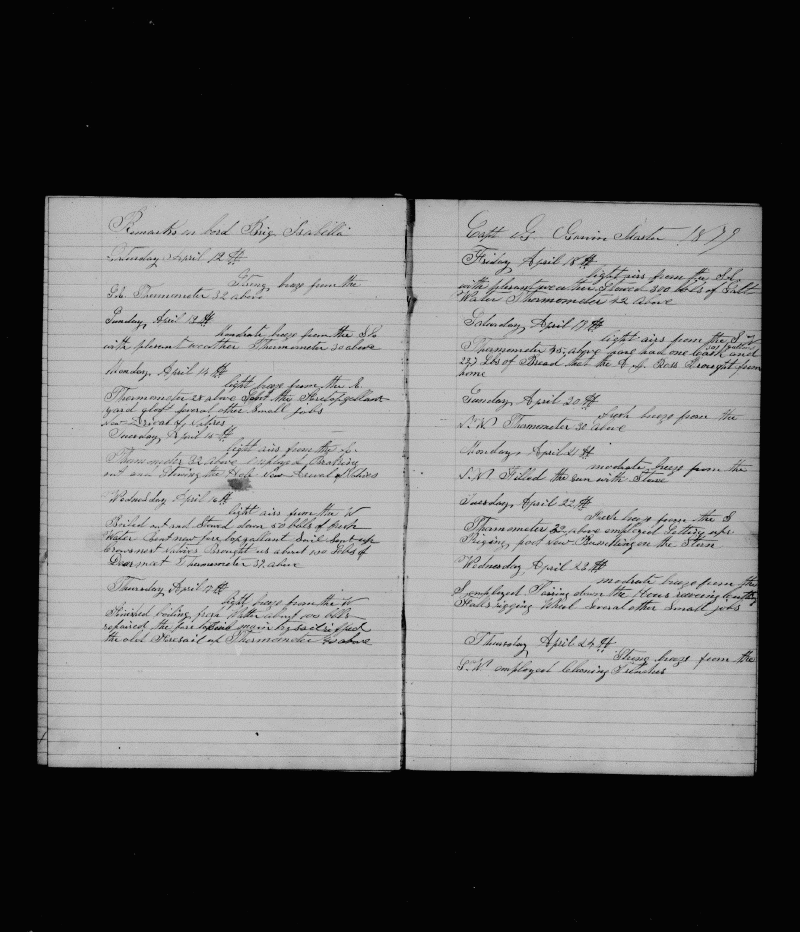 Remarks on bord Brig Isabella
Saturday April 12th
Strong breeze from the
S.E. Thermometer 32 above
Sunday, April 13th
Moodrate breeze from the
with plesent weather Thermometer 30 above
Monday, April 14th
light breeze from the E
Thermometer 28 above Sent the Foretopgallant
yard aloft several other Small jobs
Tuesday, April 15th
light airs from the
Thermometer 32 above Employed Breaking
out and Stowing the Hole
Wednesday April 16th
light airs from the W
Boiled out and Stowed down 50 bbls of fresh
Water Bent new fore topgallant Sail Sent up
Crowsnest Natives Brought us about 100 lbs of
Dear meat Thermometer 32 above
Thursday, April 17th
light breeze from the W
Finished boiling fresh Water about 100 bbls
repaired the fore
the old Foresail up Thermometer 30 above
Capt G. Garvin Master 1879
Friday April 18th
light airs from the
with plesent weather Stowed 300 bbls of Salt
Water Thermometer 32 above
Saturday, April 19th
light airs from the S W
Thermometer above and one Cask and
232 Lbs of Bread that the Era's Boats Brought from
ome
Sunday April 20th
Fresh breeze from the
N.W. Thermometer 30 above
Monday April 21th
moderate breeze from the
N.W. Filled the run with Stove
Tuesday, April 22th
Fresh breeze from the S
Thermometer 32 above employed Setting up
Riging, port Side Bumpking on the Stern
Wednesday April 23th
moderate breeze from the
S employed Tarring down the
Stasils rigging Wheel several other Small jobs
Thursday April 24th
Strong breeze from the
S.W. employed Cleaning